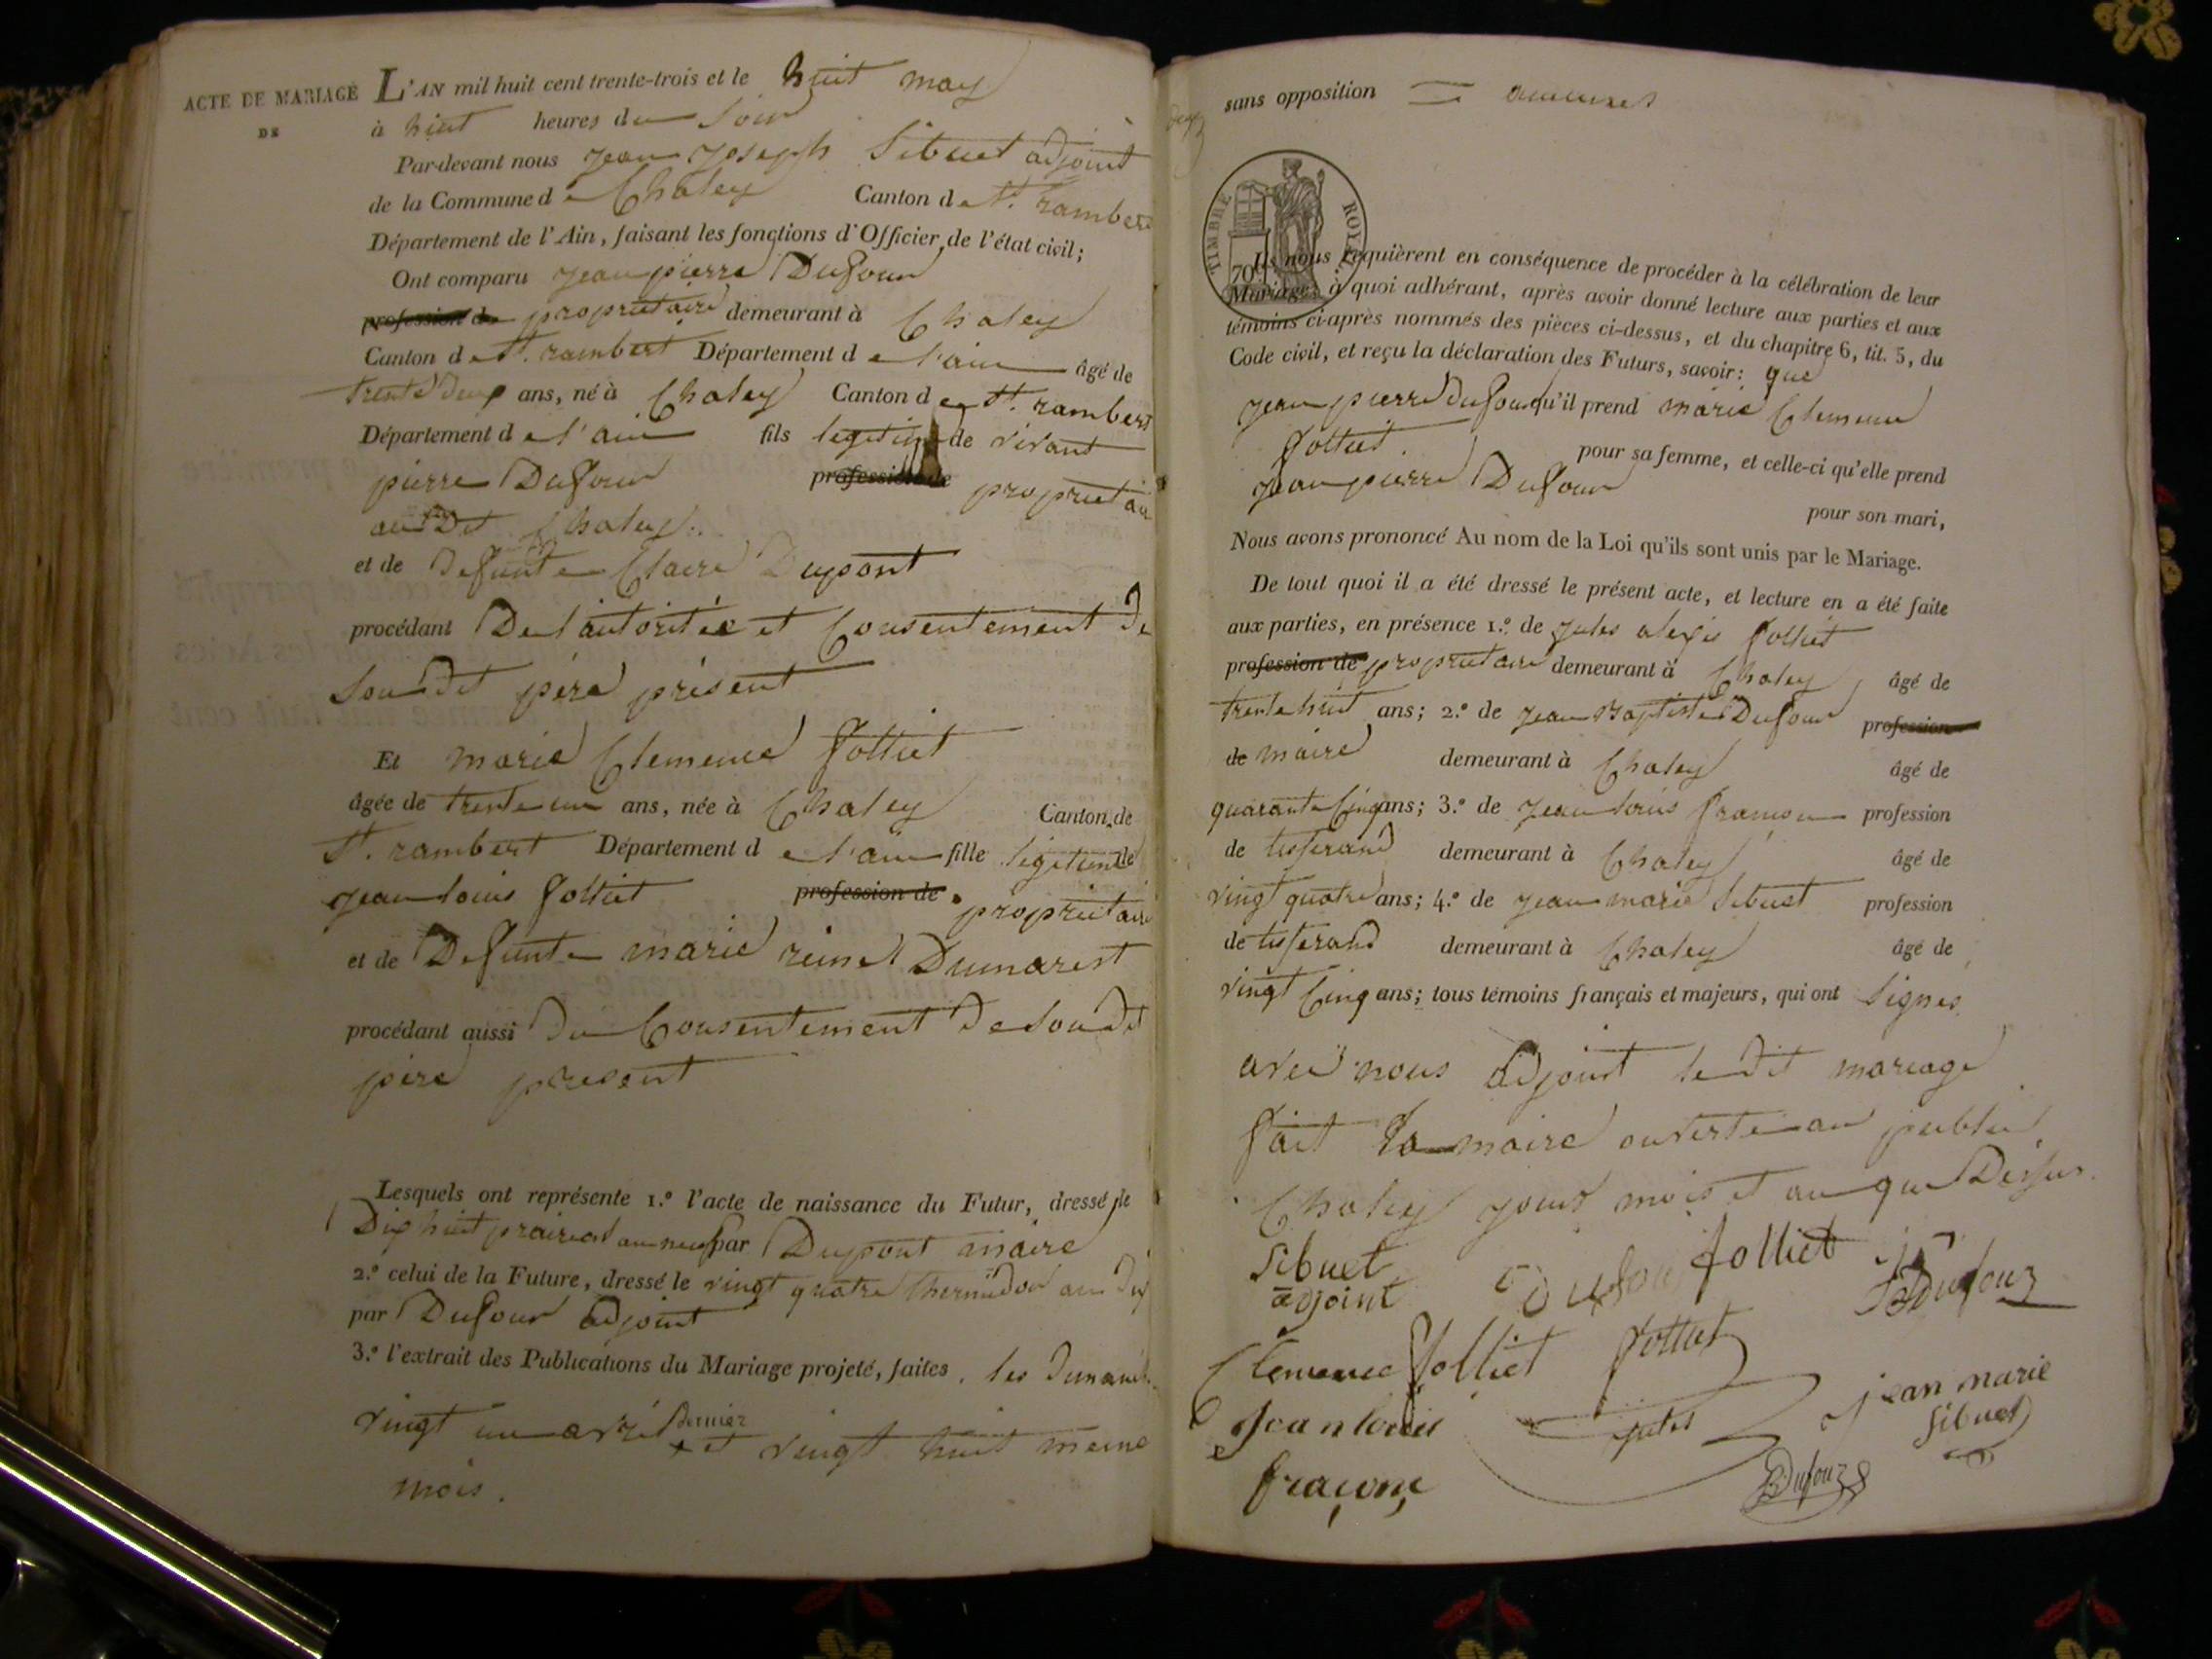 ACTE DE MARIAGE
DE
L'AN mil huit cent trente-trois et le huit may
à huit heures du Soir
Par-devant nous Jean Joseph Sibuet adjoint
de la Commune de Chaley Canton de St. rambert
Département de l'Ain, faisant les fonctions d'Officier de l'état civil;
Ont comparu Jean pierre Dufour
profession de propriétaire demeurant à Chaley
Canton de St. rambert Département de l'ain âgé de
trente deux ans, né à Chaley Canton de St. rambert
Département de l'ain fils legitime de vivant
pierre Dufour profession de propriétai
au Dit Chaley.
et de defunte Claire Dupont
procédant De l'autoritée et Consentement de
Son dit père présent
Et marie Clemence Jolliet
âgée de trente un ans, née à Chaley Canton de
St. rambert Département de l'ain fille legitime de
Jean louis Jolliet profession de propriétaire
et de Defunte marie reine Dumarest
procédant aussi du Consentement de Son dit
père present
Lesquels ont représente 1.º l'acte de naissance du Futur, dressé le
Dix huit prairial an neuf par Dupont maire
2.º celui de la Future, dressé le vingt quatre thermidor an dix
par Dufour adjoint
3.º l'extrait des Publications du Mariage projeté, faites les dimanche
vingt un avril dernier et vingt huit meme
mois.
sans opposition aucunes
TIMBRE ROYAL
70
Ils nous requièrent en conséquence de procéder à la célébration de leur
Mariage; à quoi adhérant, après avoir donné lecture aux parties et aux
témoins ci-après nommés des pièces ci-dessus, et du chapitre 6, tit. 5, du
Code civil, et reçu la déclaration des Futurs, savoir: que
Jean pierre Dufour qu'il prend marie Clemence
Jolliet pour sa femme, et celle-ci qu'elle prend
Jean pierre Dufour pour son mari,
Nous avons prononcé Au nom de la Loi qu'ils sont unis par le Mariage.
De tout quoi il a été dressé le présent acte, et lecture en a été faite
aux parties, en présence 1.º de Jules alexis Jolliet
profession de propriétaire demeurant à Chaley âgé de
trente huit ans; 2.º de Jean Baptiste Dufour profession
de maire demeurant à Chaley âgé de
quarante Cinq ans; 3.º de Jean louis françon profession
de tisserand demeurant à Chaley âgé de
vingt quatre ans; 4.º de Jean marie Sibuet profession
de tisserand demeurant à Chaley âgé de
vingt Cinq ans; tous témoins français et majeurs, qui ont Signés
avec nous adjoint le dit mariage
fait la maire ouverte au public
Chaley jours mois et an que Dessus.
Sibuet
adjoint
Dufour Jolliet
Dufour
Clemence Jolliet Jolliet
Jean louis
Jules
jean marie
Sibuet
françone
Dufour